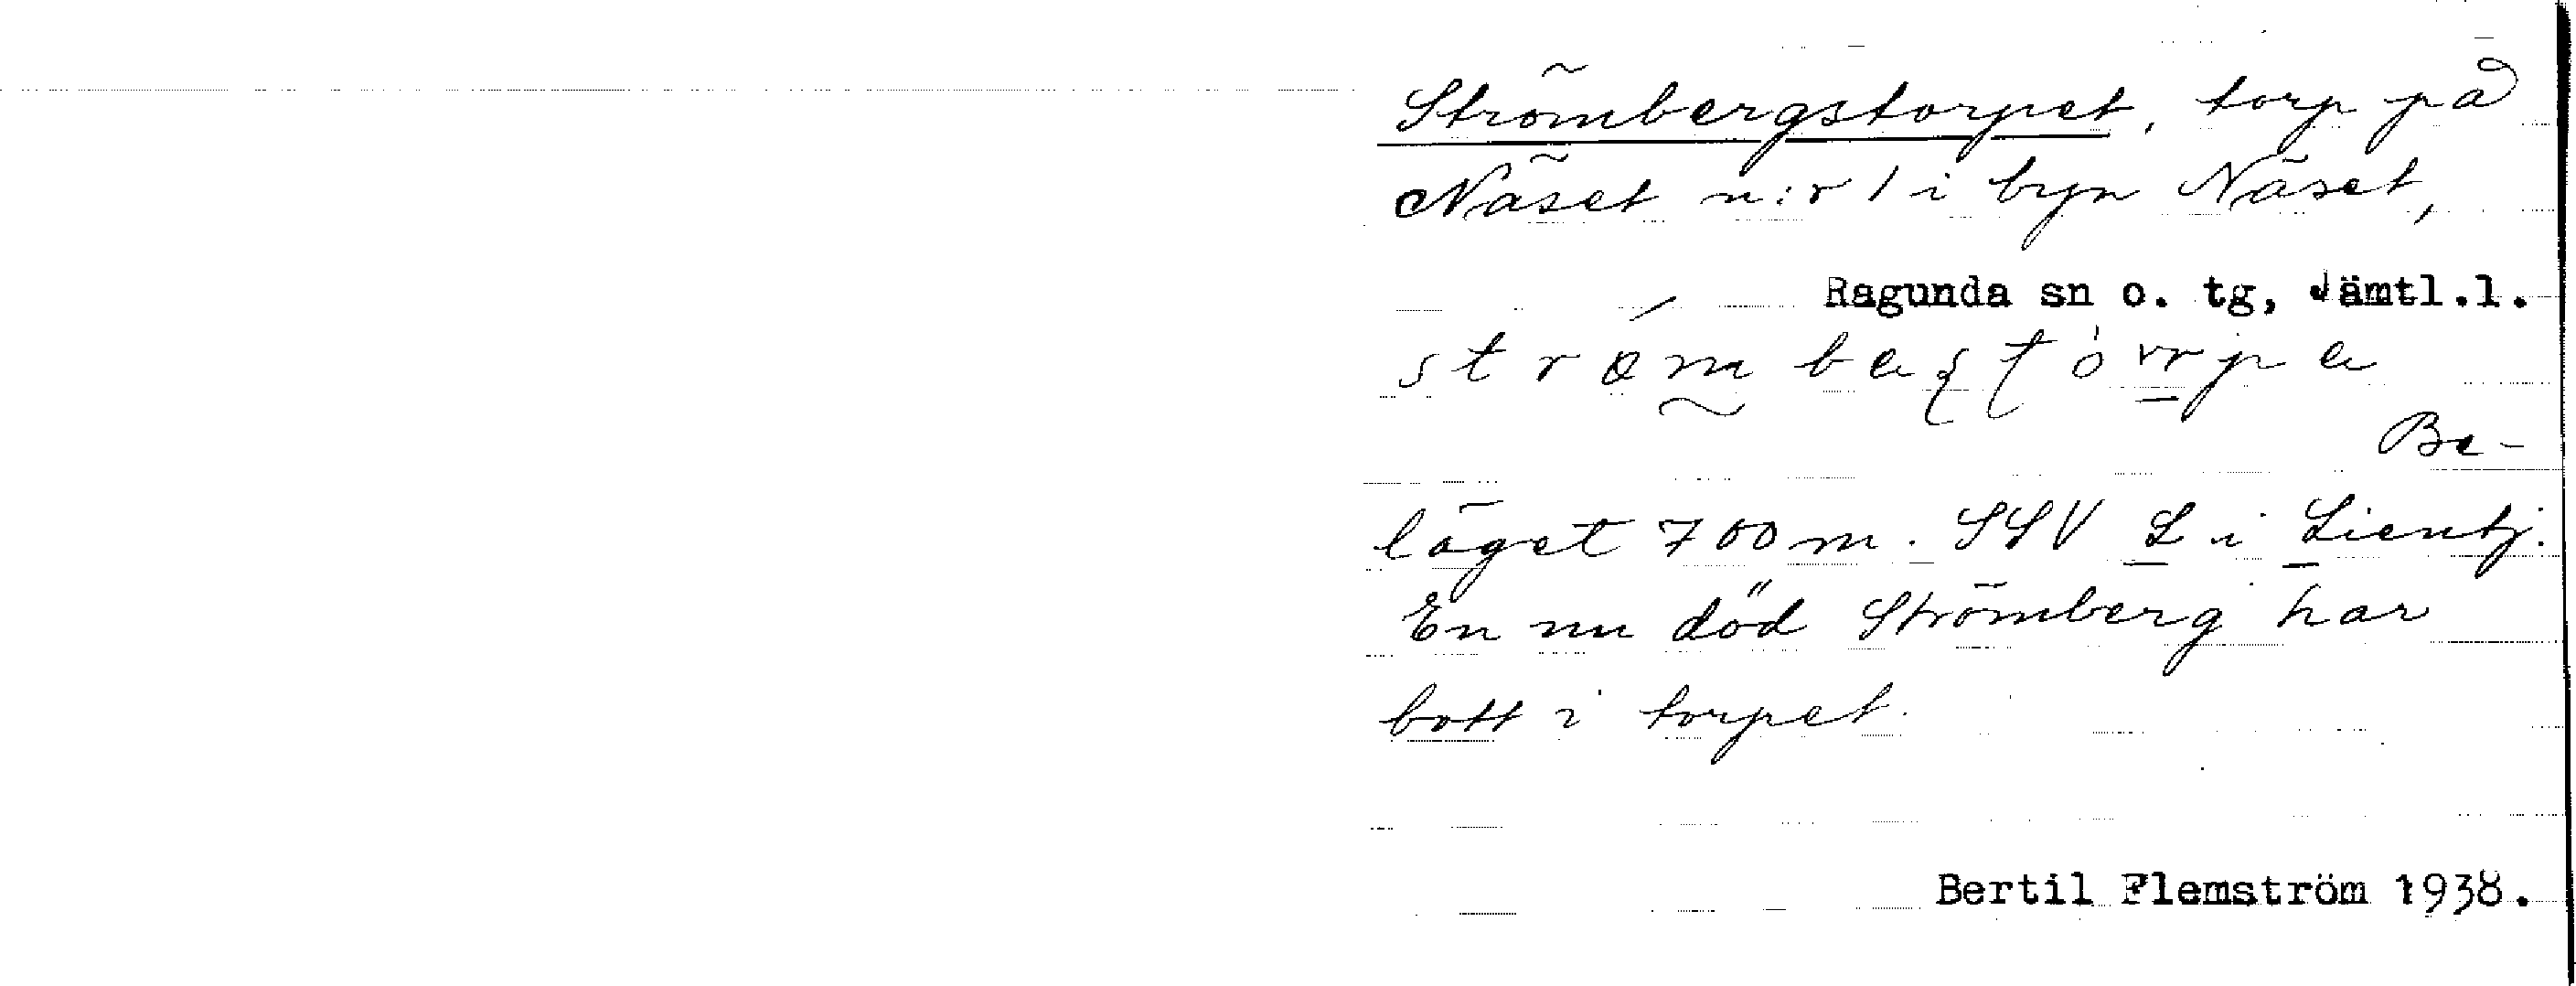 Strömbergstorpet, torp på
Näset n:r 1 i byn Näset,
Ragunda sn o. tg, Jämtl.l.
Be-
läget 700 m. SSV L i Lientj.
En nu död Strömberg har
bott i torpet.
Bertil Flemström 1938.